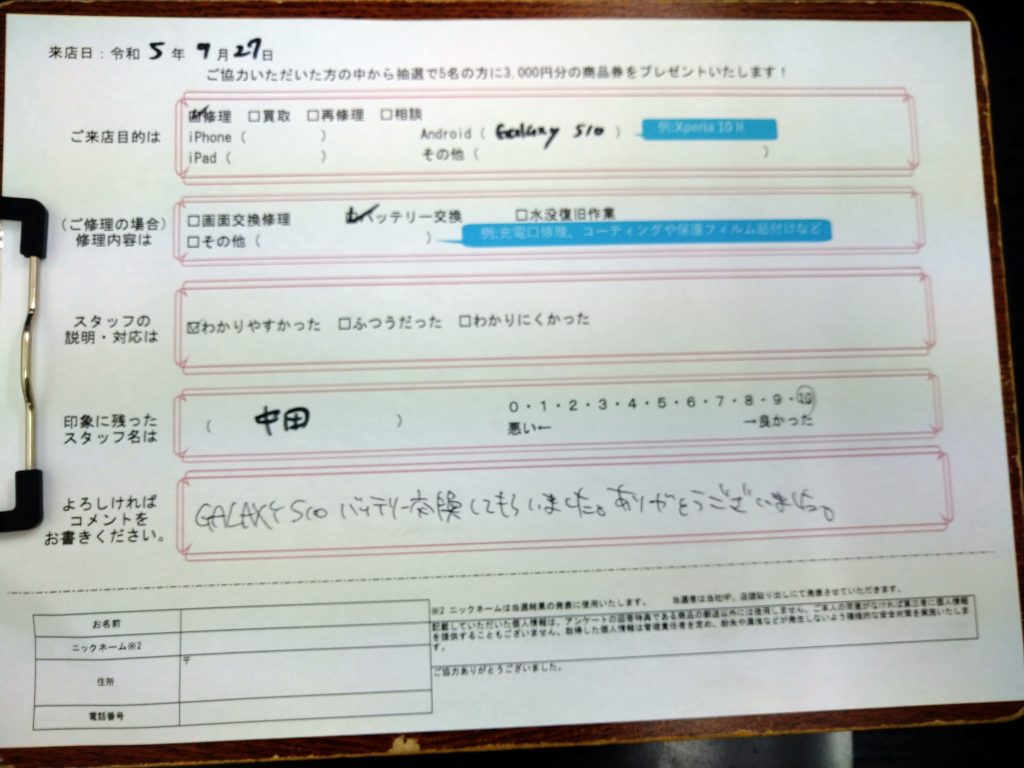 来店日：令和 5 年 9 月 27 日
ご協力いただいた方の中から抽選で5名の方に3,000円分の商品券をプレゼントいたします！
ご来店目的は
☑修理 □買取 □再修理 □相談
iPhone（ ） Android（ Galaxy S10 ） 例:Xperia 10 II
iPad（ ） その他（ ）
（ご修理の場合）
修理内容は
□画面交換修理 ☑バッテリー交換 □水没復旧作業
□その他（ ） 例:充電口修理、コーティングや保護フィルム貼付けなど
スタッフの
説明・対応は
☑わかりやすかった □ふつうだった □わかりにくかった
印象に残った
スタッフ名は
（ 中田 ）
0・1・2・3・4・5・6・7・8・9・10
悪い← →良かった
よろしければ
コメントを
お書きください。
GALAXY S10 バッテリー交換してもらいました。ありがとうございました。
お名前
ニックネーム※2
住所
〒
電話番号
※2 ニックネームは当選結果の発表に使用いたします。 当選者は当社HP、店頭貼り出しにて発表させていただきます。
記載していただいた個人情報は、アンケートの回答特典である商品の郵送以外には使用しません。ご本人の同意がなければ第三者に個人情報
を提供することもございません。取得した個人情報は管理責任者を定め、紛失や漏洩などが発生しないよう積極的な安全対策を実施いたしま
す。
ご協力ありがとうございました。